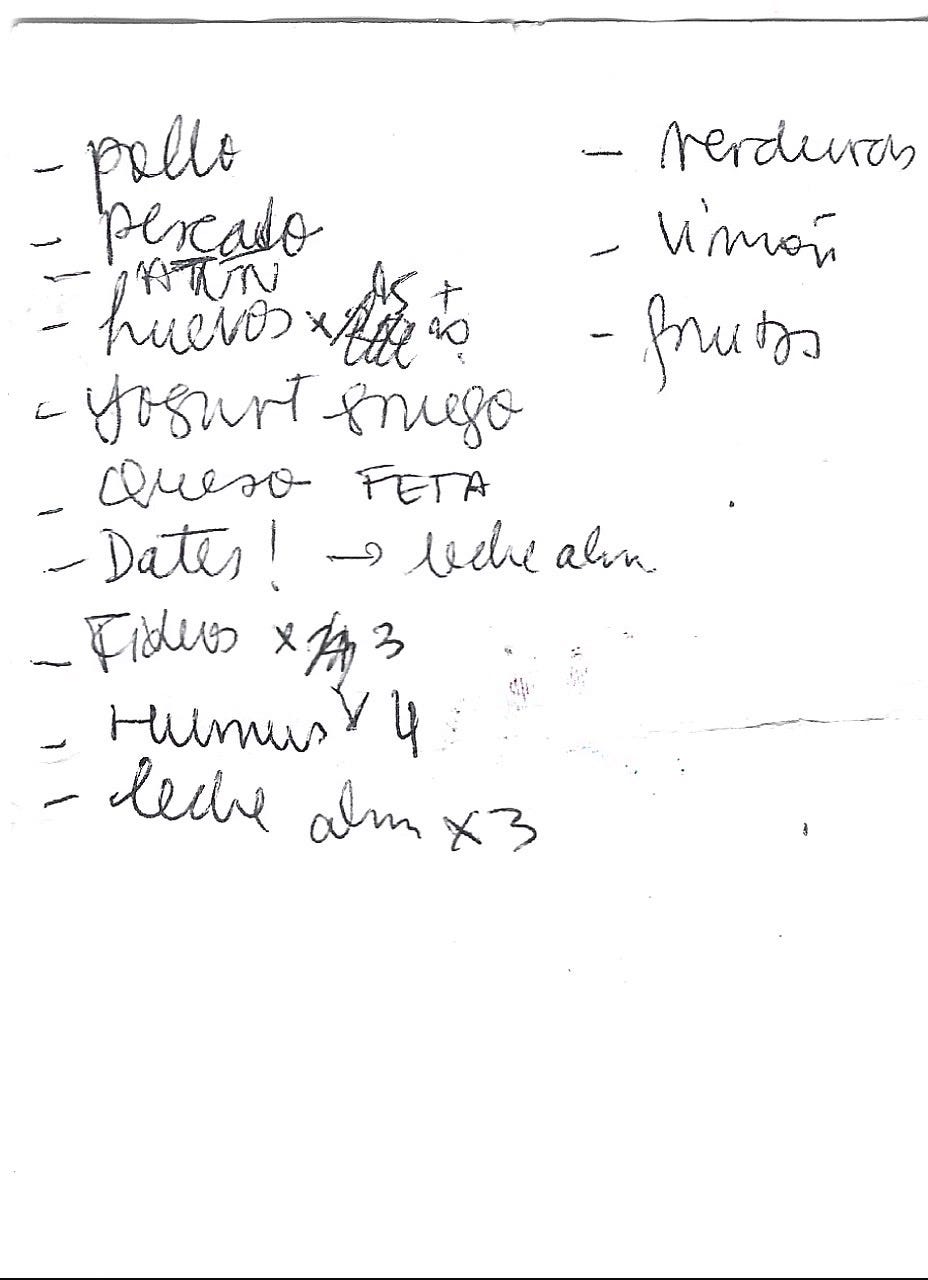 - pollo
- pescado
- ATÚN
- huevos x
- yogurt griego
- Queso FETA
- Dates! → leche alm
- Fideos x 3
- Humus x 4
- leche alm x 3
- verduras
- limón
- frutas